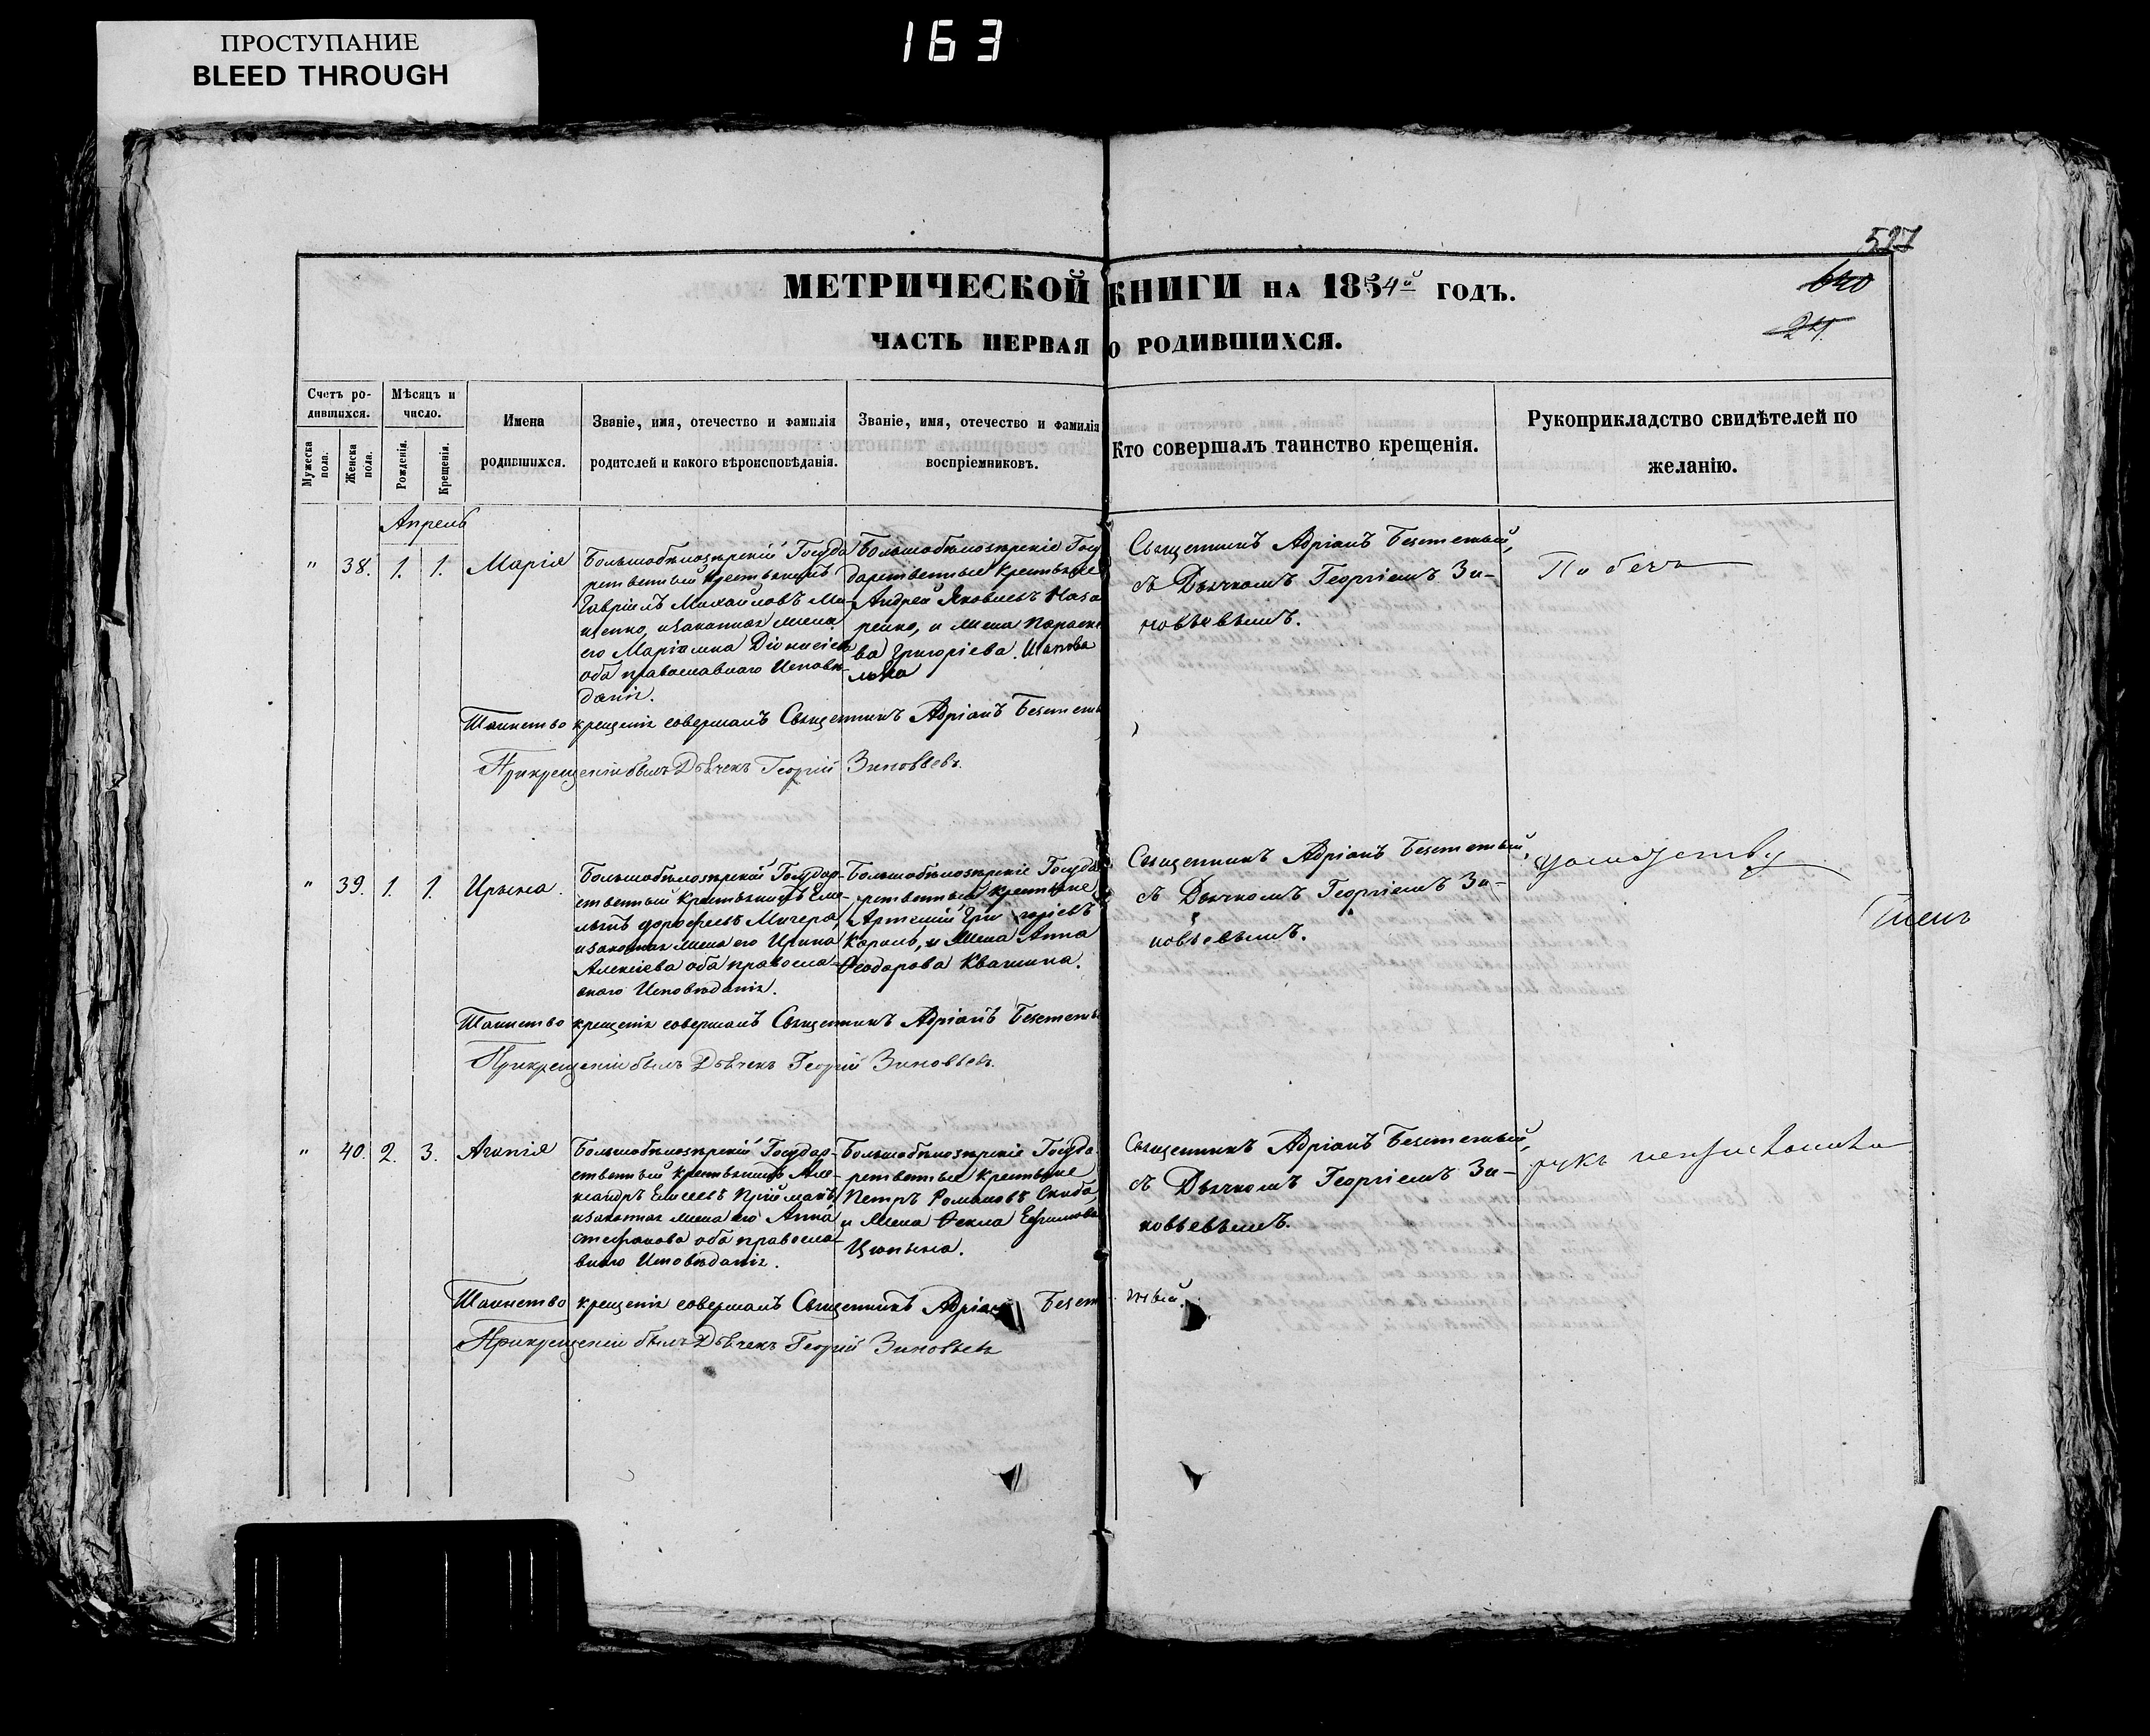 ПРОСТУПАНИЕ
BLEED THROUGH
163
527
640
МЕТРИЧЕСКОЙ КНИГИ НА 1854й ГОДЪ.
ЧАСТЬ ПЕРВАЯ О РОДИВШИХСЯ.
Счетъ ро-
дившихся.
Мужеска пола.
Женска пола.
Мѣсяцъ и
число.
Рожденія.
Крещенія.
Имена
родившихся.
Званіе, имя, отечество и фамилія
родителей и какого вѣроисповѣданія.
Званіе, имя, отечество и фамилія
воспріемниковъ.
Кто совершалъ таинство крещенія.
Рукоприкладство свидѣтелей по
желанію.
Апрель
" 38. 1. 1. Марія
Большобѣлозерскій Госуда
рственный Крестьянинъ
Гавріилъ Михайловъ Ми-
щенко, изаконная жена
его Маріамна Діонисіев
оба православнаго Исповѣ-
данія.
Большобѣлозерскіе Госу
дарственные Крестьяне
Андрей Яковлевъ Наза
ренко, и жена Параске
ва Григоріева Шапова
лова
Священникъ Адріанъ Безсметный,
съ Дьячкомъ Георгіемъ Зи-
новьевымъ.
Таинство крещенія совершалъ Священникъ Адріанъ Безсметн
Прикрещеніи былъ Дьячекъ Георгій Зиновьевъ.
" 39. 1. 1. Ирына.
Большобѣлозерскій Государ-
ственный Крестьянинъ Еме-
льянъ Дорофеевъ Мичера,
изаконная жена его Ирина
Алексіева оба правосла-
внаго Исповѣданія.
Большобѣлозерскіе Госуда
рственный крестьяне
Артемій Григоріевъ
Король, и Жена Анна
Феодорова Квашина.
Священникъ Адріанъ Безсметный,
съ Дьячкомъ Георгіемъ Зи-
новьевымъ.
Таинство крещенія совершалъ Священникъ Адріанъ Безсметны
Прикрещеніи былъ Дьячекъ Георгій Зиновьевъ.
" 40. 2. 3. Агапія
Большобѣлозерскій Государ-
ственный крестьянинъ Але-
ксандръ Елисеевъ Пріймакъ,
изаконная жена его Анна
Стефанова оба правосла-
внаго Исповѣданія.
Большобѣлозерскіе Госуда
рственные крестьяне
Петръ Романовъ Скиба,
и Жена Фекла Ефимова
Цюпына.
Священникъ Адріанъ Безсметный,
съ Дьячкомъ Георгіемъ Зи-
новьевымъ.
Таинство крещенія совершалъ Священникъ Адріан Безсм тный.
Прикрещеніи былъ Дьячекъ Георгій Зиновьевъ